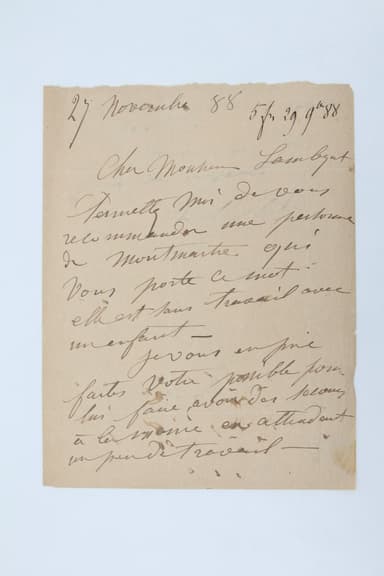 27 Novembre 88
5 fr 29 9bre 88
Cher Monsieur
Permettez moi de vous
recommander une personne
de Montmartre qui
vous porte ce mot :
elle est sans travail avec
un enfant —
je vous en prie
faites votre possible pour
lui faire avoir des secours
à la mairie en attendant
un peu de travail —